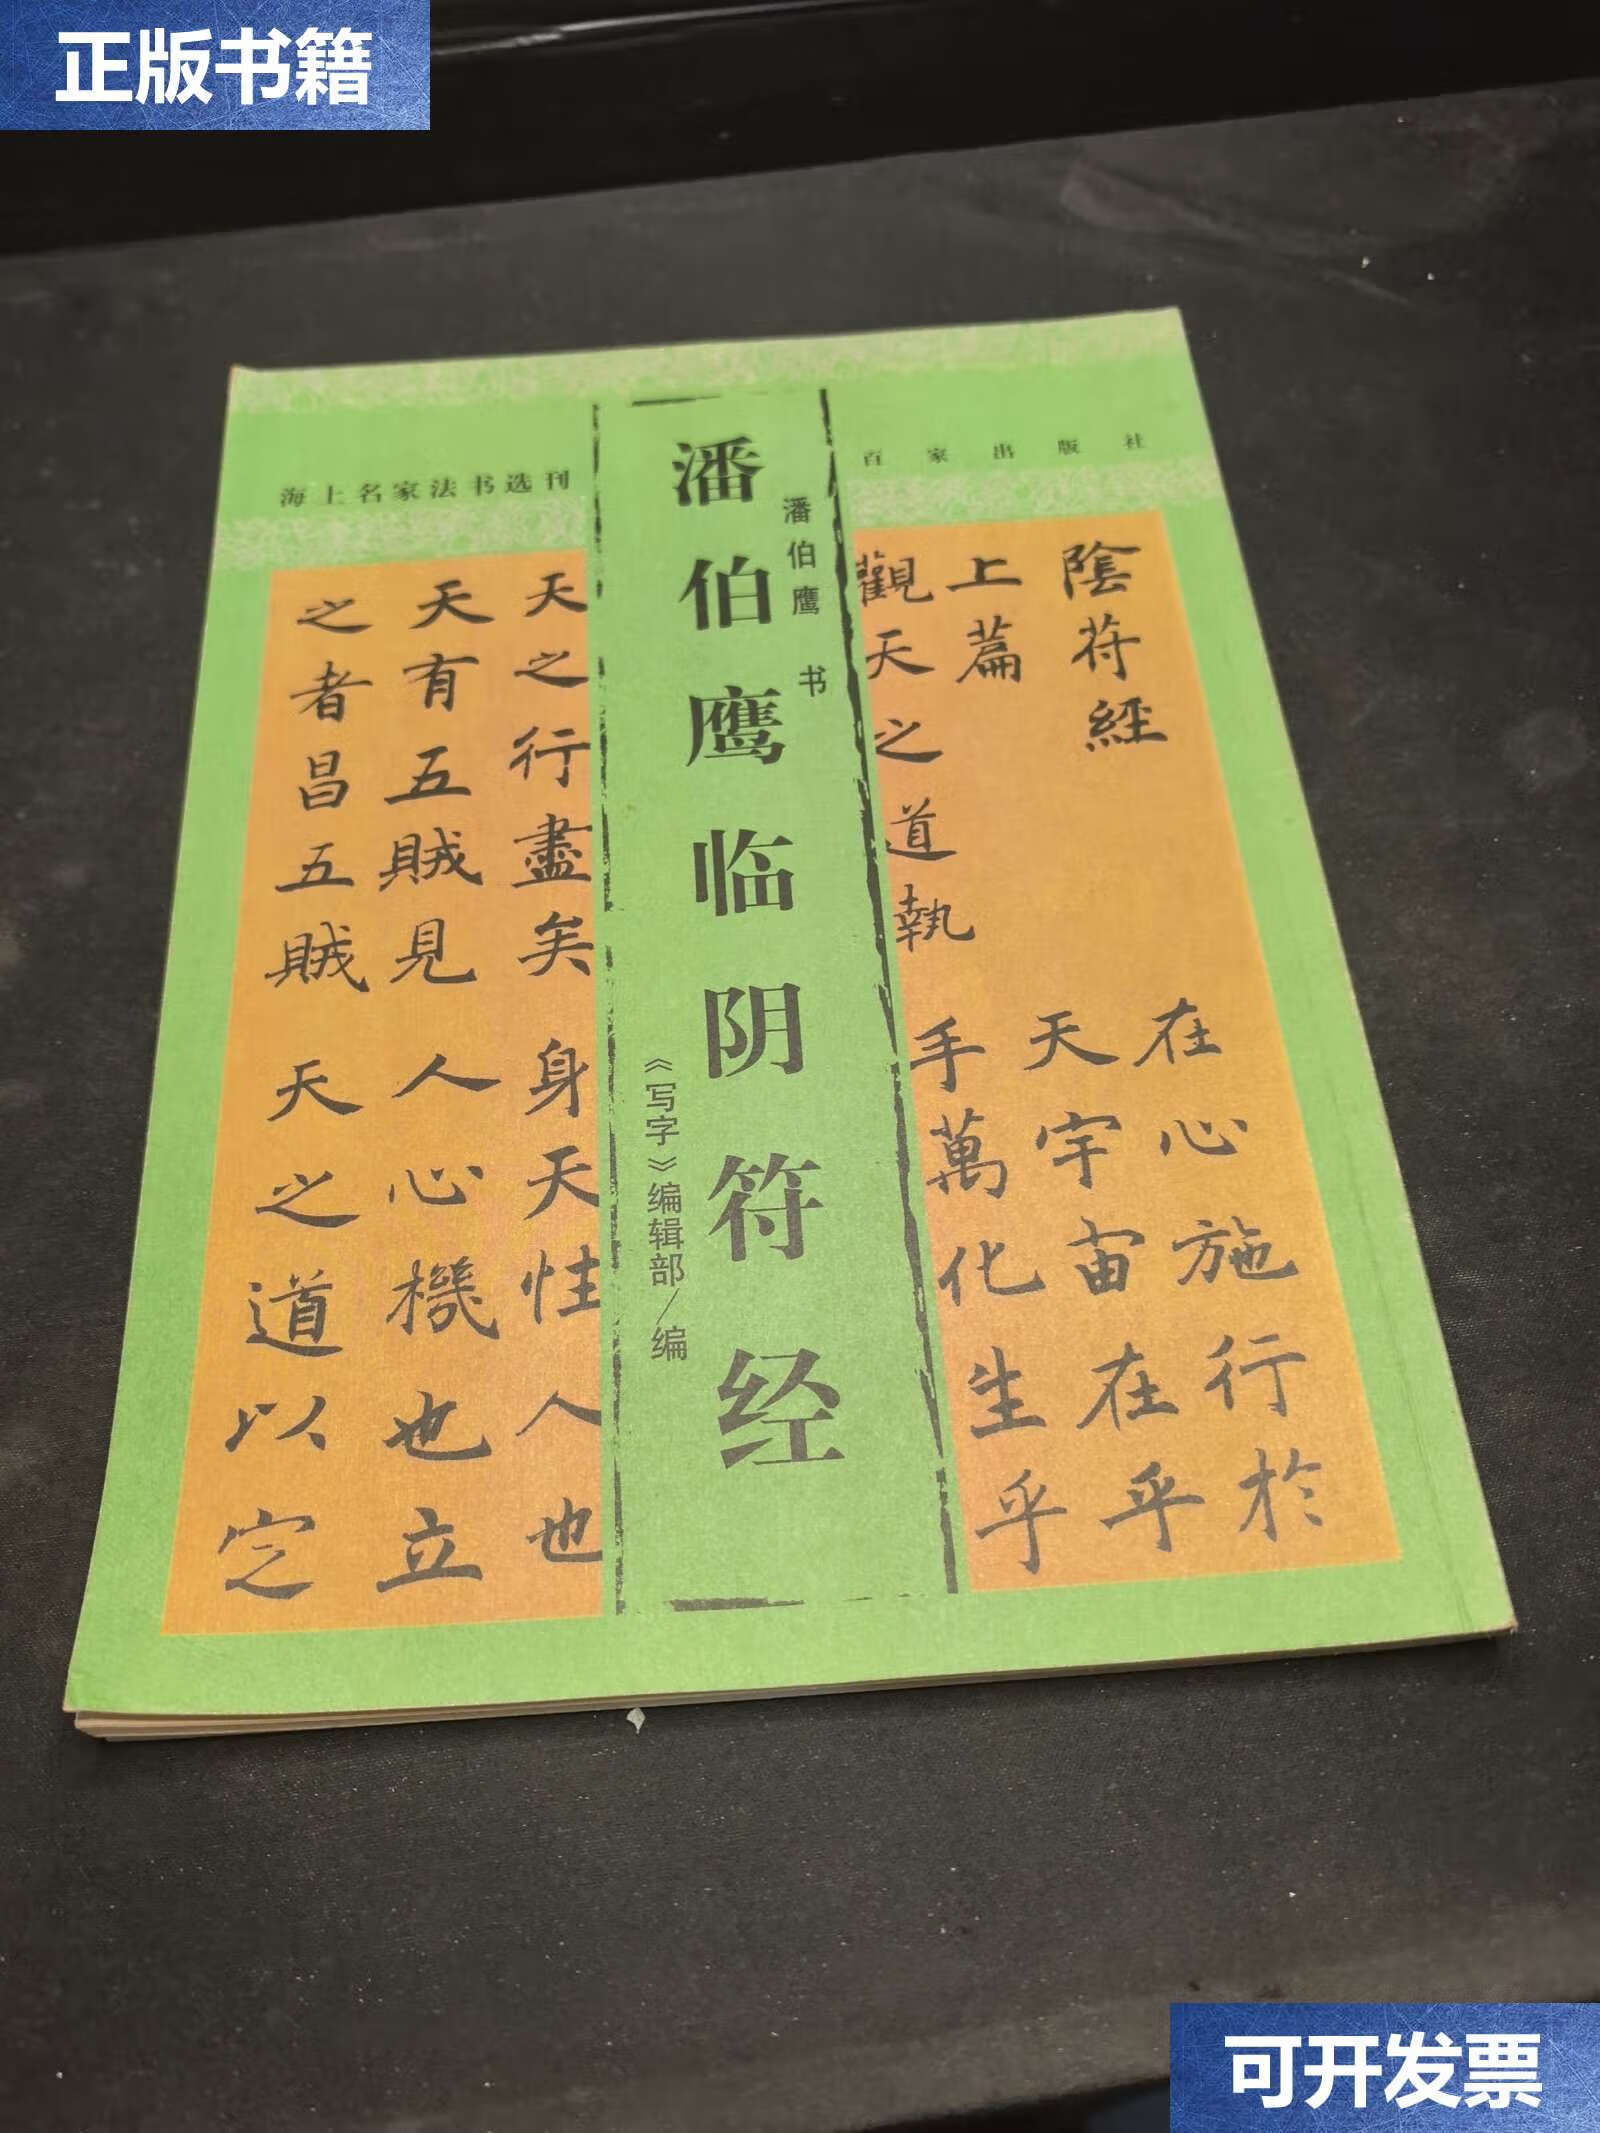 正版书籍
海上名家法书选刊
百家出版社
潘伯鹰临阴符经
潘伯鹰 书
《写字》编辑部/编
陰符經
上篇
觀天之道執
天之行盡矣
天有五賊見
之者昌五賊
在心施行於
天宇宙在乎
手萬化生乎
身天性人也
人心機也立
天之道以定
可开发票